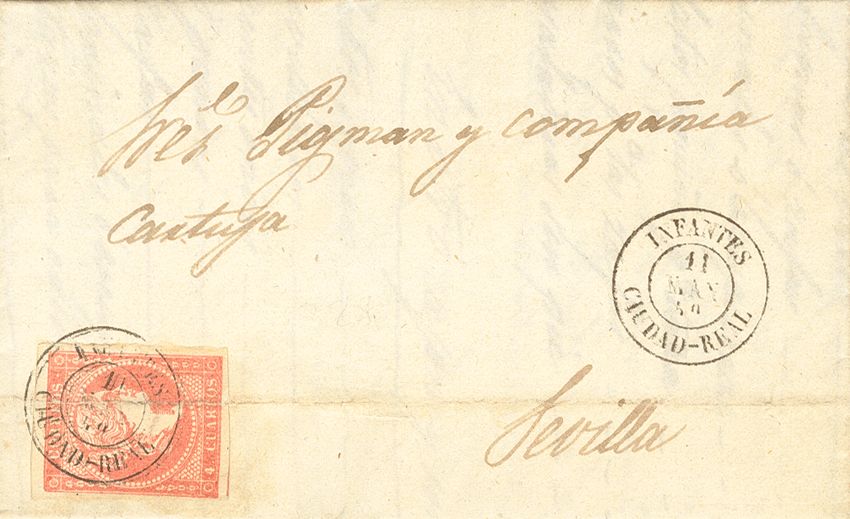 Sres Pigman y compañía
Cartuja
INFANTES
11
MAY
59
CIUDAD-REAL
Sevilla
INFANTES
11
59
CIUDAD-REAL
4 CUARTOS